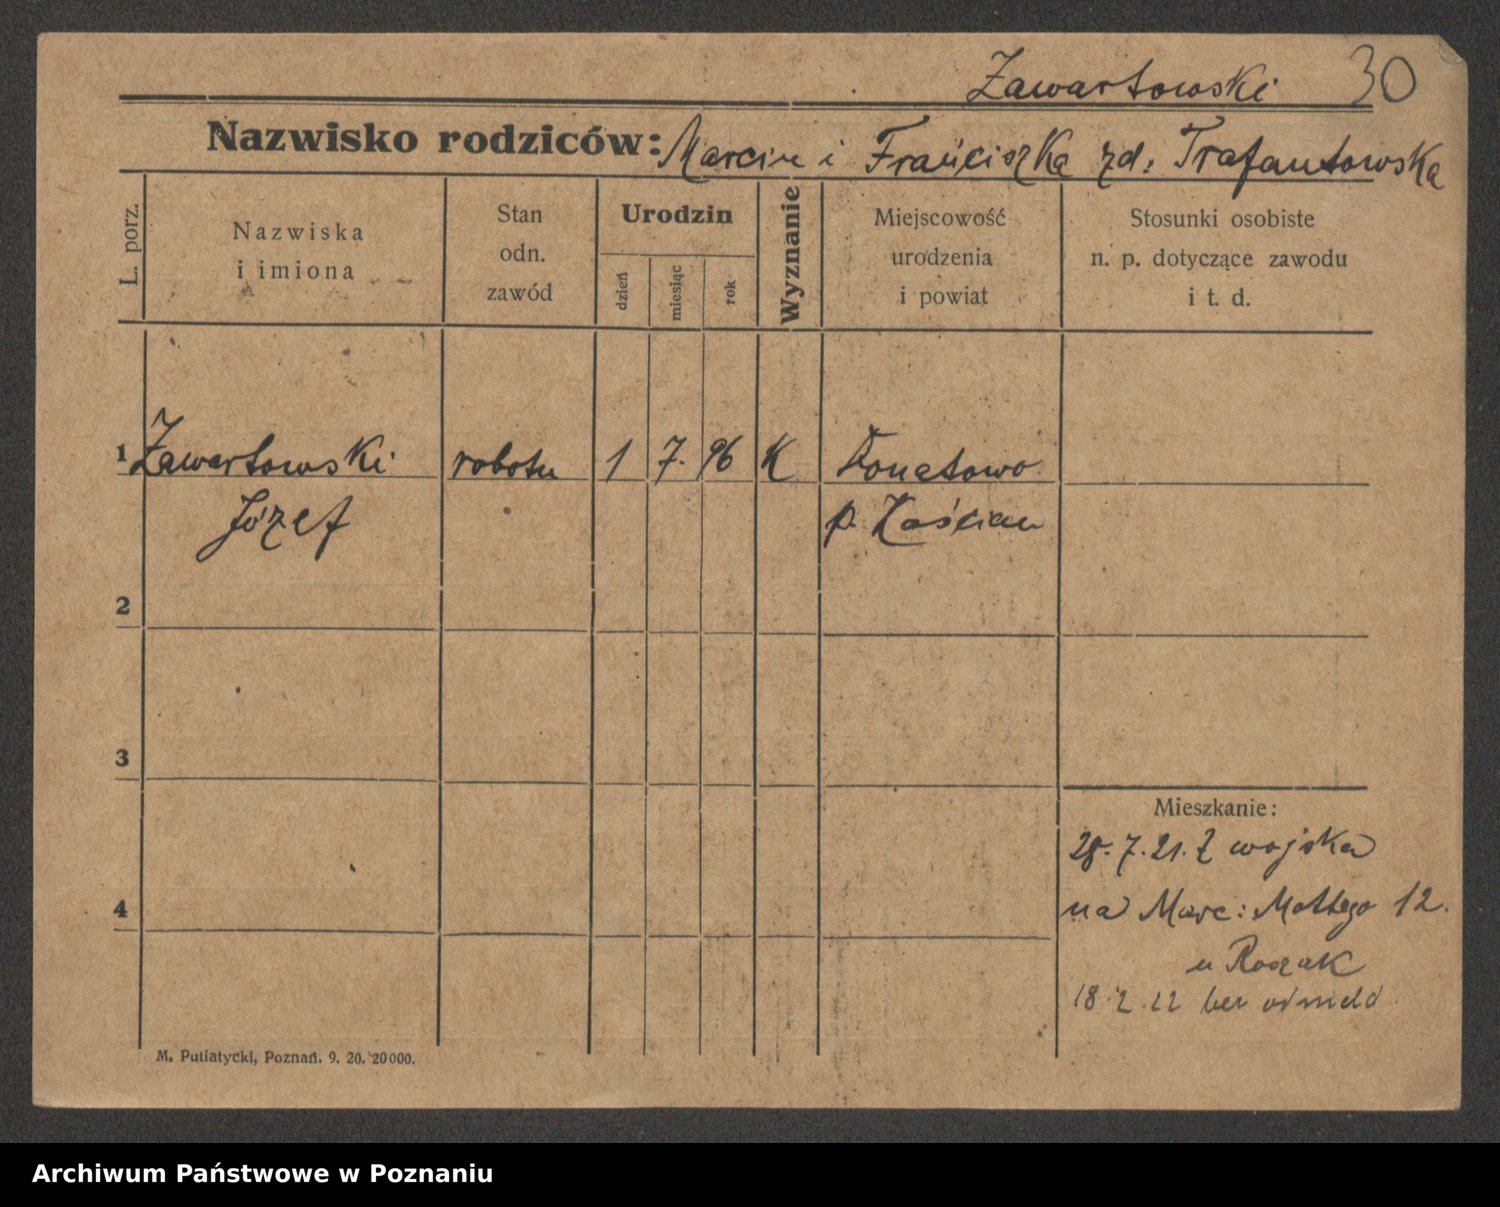 Zawartowski 30
Nazwisko rodziców: Marcin i Franciszka zd. Trafantowska
L. porz.
Nazwiska
i imiona
Stan
odn.
zawód
Urodzin
dzień
miesiąc
rok
Wyznanie
Miejscowość
urodzenia
i powiat
Stosunki osobiste
n. p. dotyczące zawodu
i t. d.
1 Zawartowski robotn 1 7. 96 K Donatowo
Józef p. Kościan
2
3
4
Mieszkanie:
28.7.21. Z wojska
na Marc: Mottego 12.
u Roszak
18.2.22 bez odmeld
M. Putiatycki, Poznań. 9. 20. 20000.
Archiwum Państwowe w Poznaniu